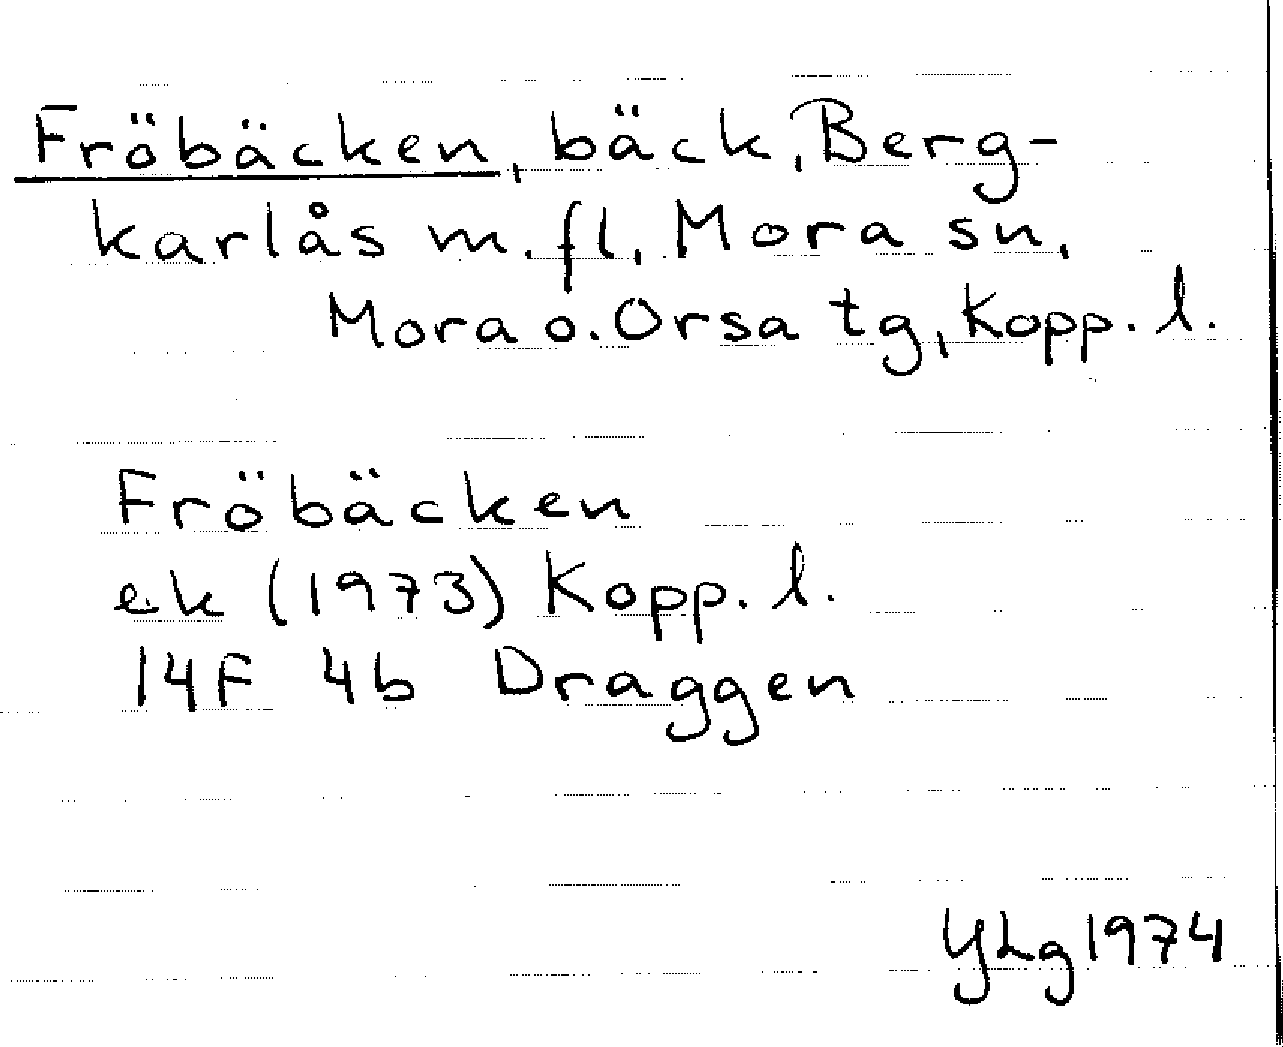 Fröbäcken, bäck, Berg-
karlås m.fl, Mora sn,
Mora o. Orsa tg, Kopp. l.
Fröbäcken
ek (1973) Kopp. l.
14F 4b Draggen
YLg 1974